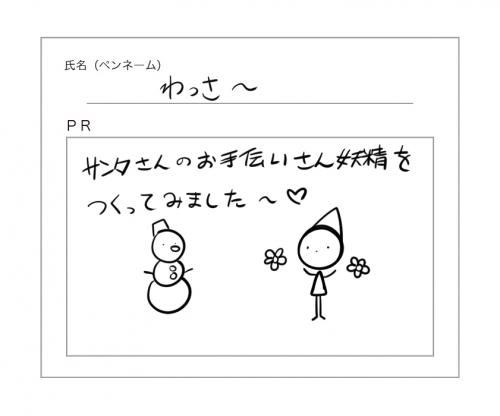 氏名（ペンネーム）
わっさ～
ＰＲ
サンタさんのお手伝いさん妖精を
つくってみました～♡